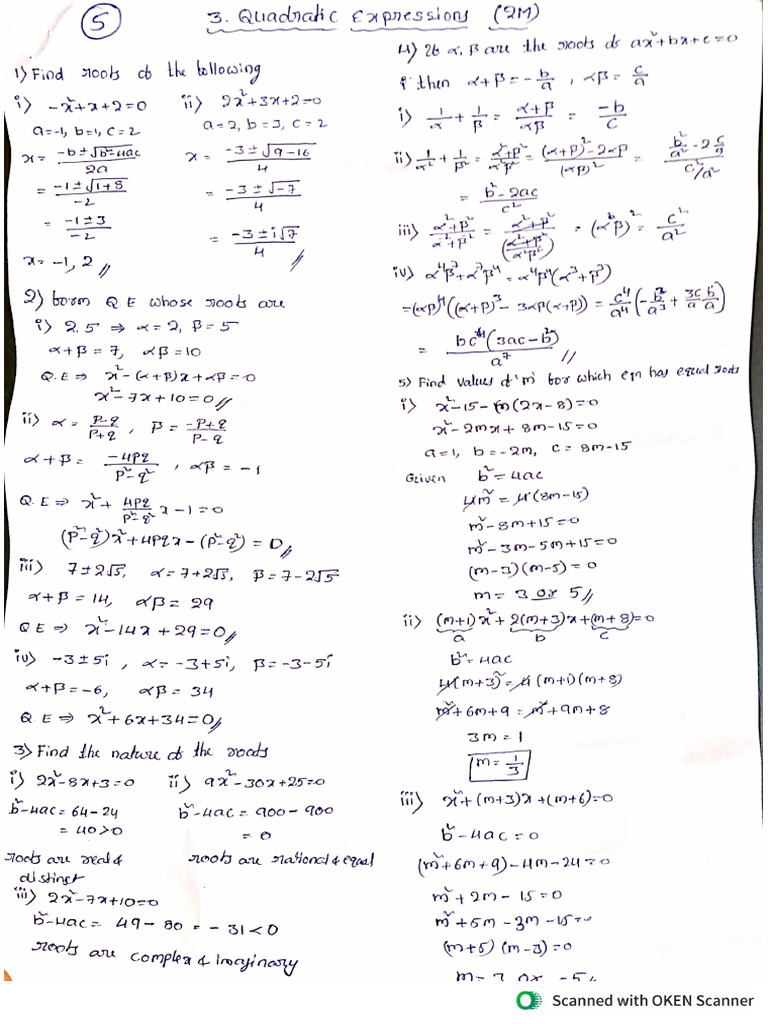 5
3. Quadratic Expressions (2M)
1) Find roots of the following
i) -x²+x+2=0 ii) 2x²+3x+2=0
a=-1, b=1, c=2 a=2, b=3, c=2
x = (-b±√(b²-4ac))/2a x = (-3±√(9-16))/4
= (-1±√(1+8))/-2 = (-3±√-7)/4
= (-1±3)/-2 = (-3±i√7)/4 //
x = -1, 2 //
2) form Q E whose roots are
i) 2, 5 ⇒ α=2, β=5
α+β=7, αβ=10
Q.E ⇒ x²-(α+β)x+αβ=0
x²-7x+10=0 //
ii) α = (P-q)/(P+q), β = (-P+q)/(P-q)
α+β = -4Pq/(P²-q²), αβ = -1
Q.E ⇒ x² + 4Pq/(P²-q²) x - 1 = 0
(P²-q²)x²+4Pqx-(P²-q²)=0 //
iii) 7±2√5, α=7+2√5, β=7-2√5
α+β=14, αβ=29
Q E ⇒ x²-14x+29=0 //
iv) -3±5i, α=-3+5i, β=-3-5i
α+β=-6, αβ=34
Q.E ⇒ x²+6x+34=0 //
3) Find the nature of the roots
i) 2x²-8x+3=0 ii) 9x²-30x+25=0
b²-4ac=64-24 b²-4ac=900-900
= 40>0 = 0
roots are real & distinct roots are rational & equal
iii) 2x²-7x+10=0
b²-4ac = 49-80 = -31<0
roots are complex & imaginary
4) If α, β are the roots of ax²+bx+c=0
then α+β = -b/a, αβ = c/a
i) 1/α + 1/β = (α+β)/αβ = -b/c
ii) 1/α² + 1/β² = (α²+β²)/(α²β²) = ((α+β)²-2αβ)/(αβ)² = (b²/a² - 2c/a)/(c²/a²)
= (b²-2ac)/c²
iii) = (αβ)² = c²/a²
iv) α⁴β⁷+α⁷β⁴ = α⁴β⁴(α³+β³)
= (αβ)⁴((α+β)³-3αβ(α+β)) = c⁴/a⁴(-b³/a³ + 3c/a b/a)
= bc⁴(3ac-b²)/a⁷ //
5) Find values of 'm' for which eqn has equal roots
i) x²-15-m(2x-8)=0
x²-2mx+8m-15=0
a=1, b=-2m, c=8m-15
Given b²=4ac
4m²=4(8m-15)
m²-8m+15=0
m²-3m-5m+15=0
(m-3)(m-5)=0
m = 3 or 5 //
ii) (m+1)x²+2(m+3)x+(m+8)=0
a b c
b²=4ac
4(m+3)²=4(m+1)(m+8)
m²+6m+9=m²+9m+8
3m=1
m=1/3
iii) x²+(m+3)x+(m+6)=0
b²-4ac=0
(m²+6m+9)-4m-24=0
m²+2m-15=0
m²+5m-3m-15=0
(m+5)(m-3)=0
m=3 or -5
Scanned with OKEN Scanner